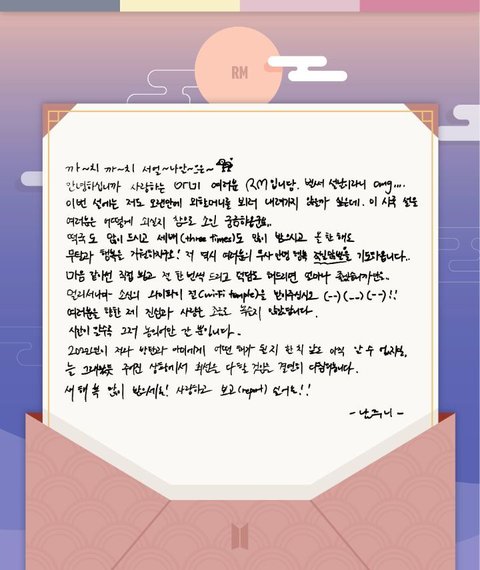 RM
까~치 까~치 서얼~나안~은~
안녕하십니까 사랑하는 아미 여러분 RM입니당. 벌써 설날이라니 omg....
이번 설에는 저도 오랜만에 외할머니를 뵈러 내려가지 않을까 싶은데. 이 시국 설을
여러분은 어떻게 쇠실지 참으로 소인 궁금하군요..
떡국도 많이 드시고 세배(three times)도 많이 받으시고 올 한 해도
무탈과 행복은 거뜬하시길! 저 역시 여러분의 무사 안녕 만복 기도하옵니다..
마음 같아선 직접 뵙고 전 한 번씩 드리고 덕담도 얼마나 좋았을까만은..
멀리서나마 소신의 와이파이 전(wi-fi temple)을 받아주십시오 (--) (__) (--) !!
여러분을 향한 제 진심과 사랑은 조금도 녹슬지 않았습니다.
시간이 갈수록 그저 농익어만 갈 뿐입니다..
2022년이 저와 방탄과 아미에게 어떤 해가 될지 한 치 앞도 아직 알 수 없지만,
늘 그래왔듯 주어진 상황에서 최선을 다할 것임은 결연히 다짐합니다.
새해 복 많이 받으세요! 사랑하고 보고(report) 싶어요!!
- 남주니 -